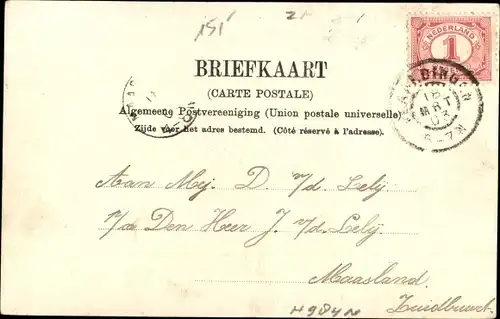 151
NEDERLAND
1
BRIEFKAART
(CARTE POSTALE)
Algemeene Postvereeniging (Union postale universelle)
Zijde voor het adres bestemd. (Côté réservé à l'adresse).
VLAARDINGEN
18
MRT
03
6-7N
Aan Mej. D. v/d. Lelij
p/a Den Heer J. v/d. Lelij.
Maasland.
Zuidbuurt.
H984N